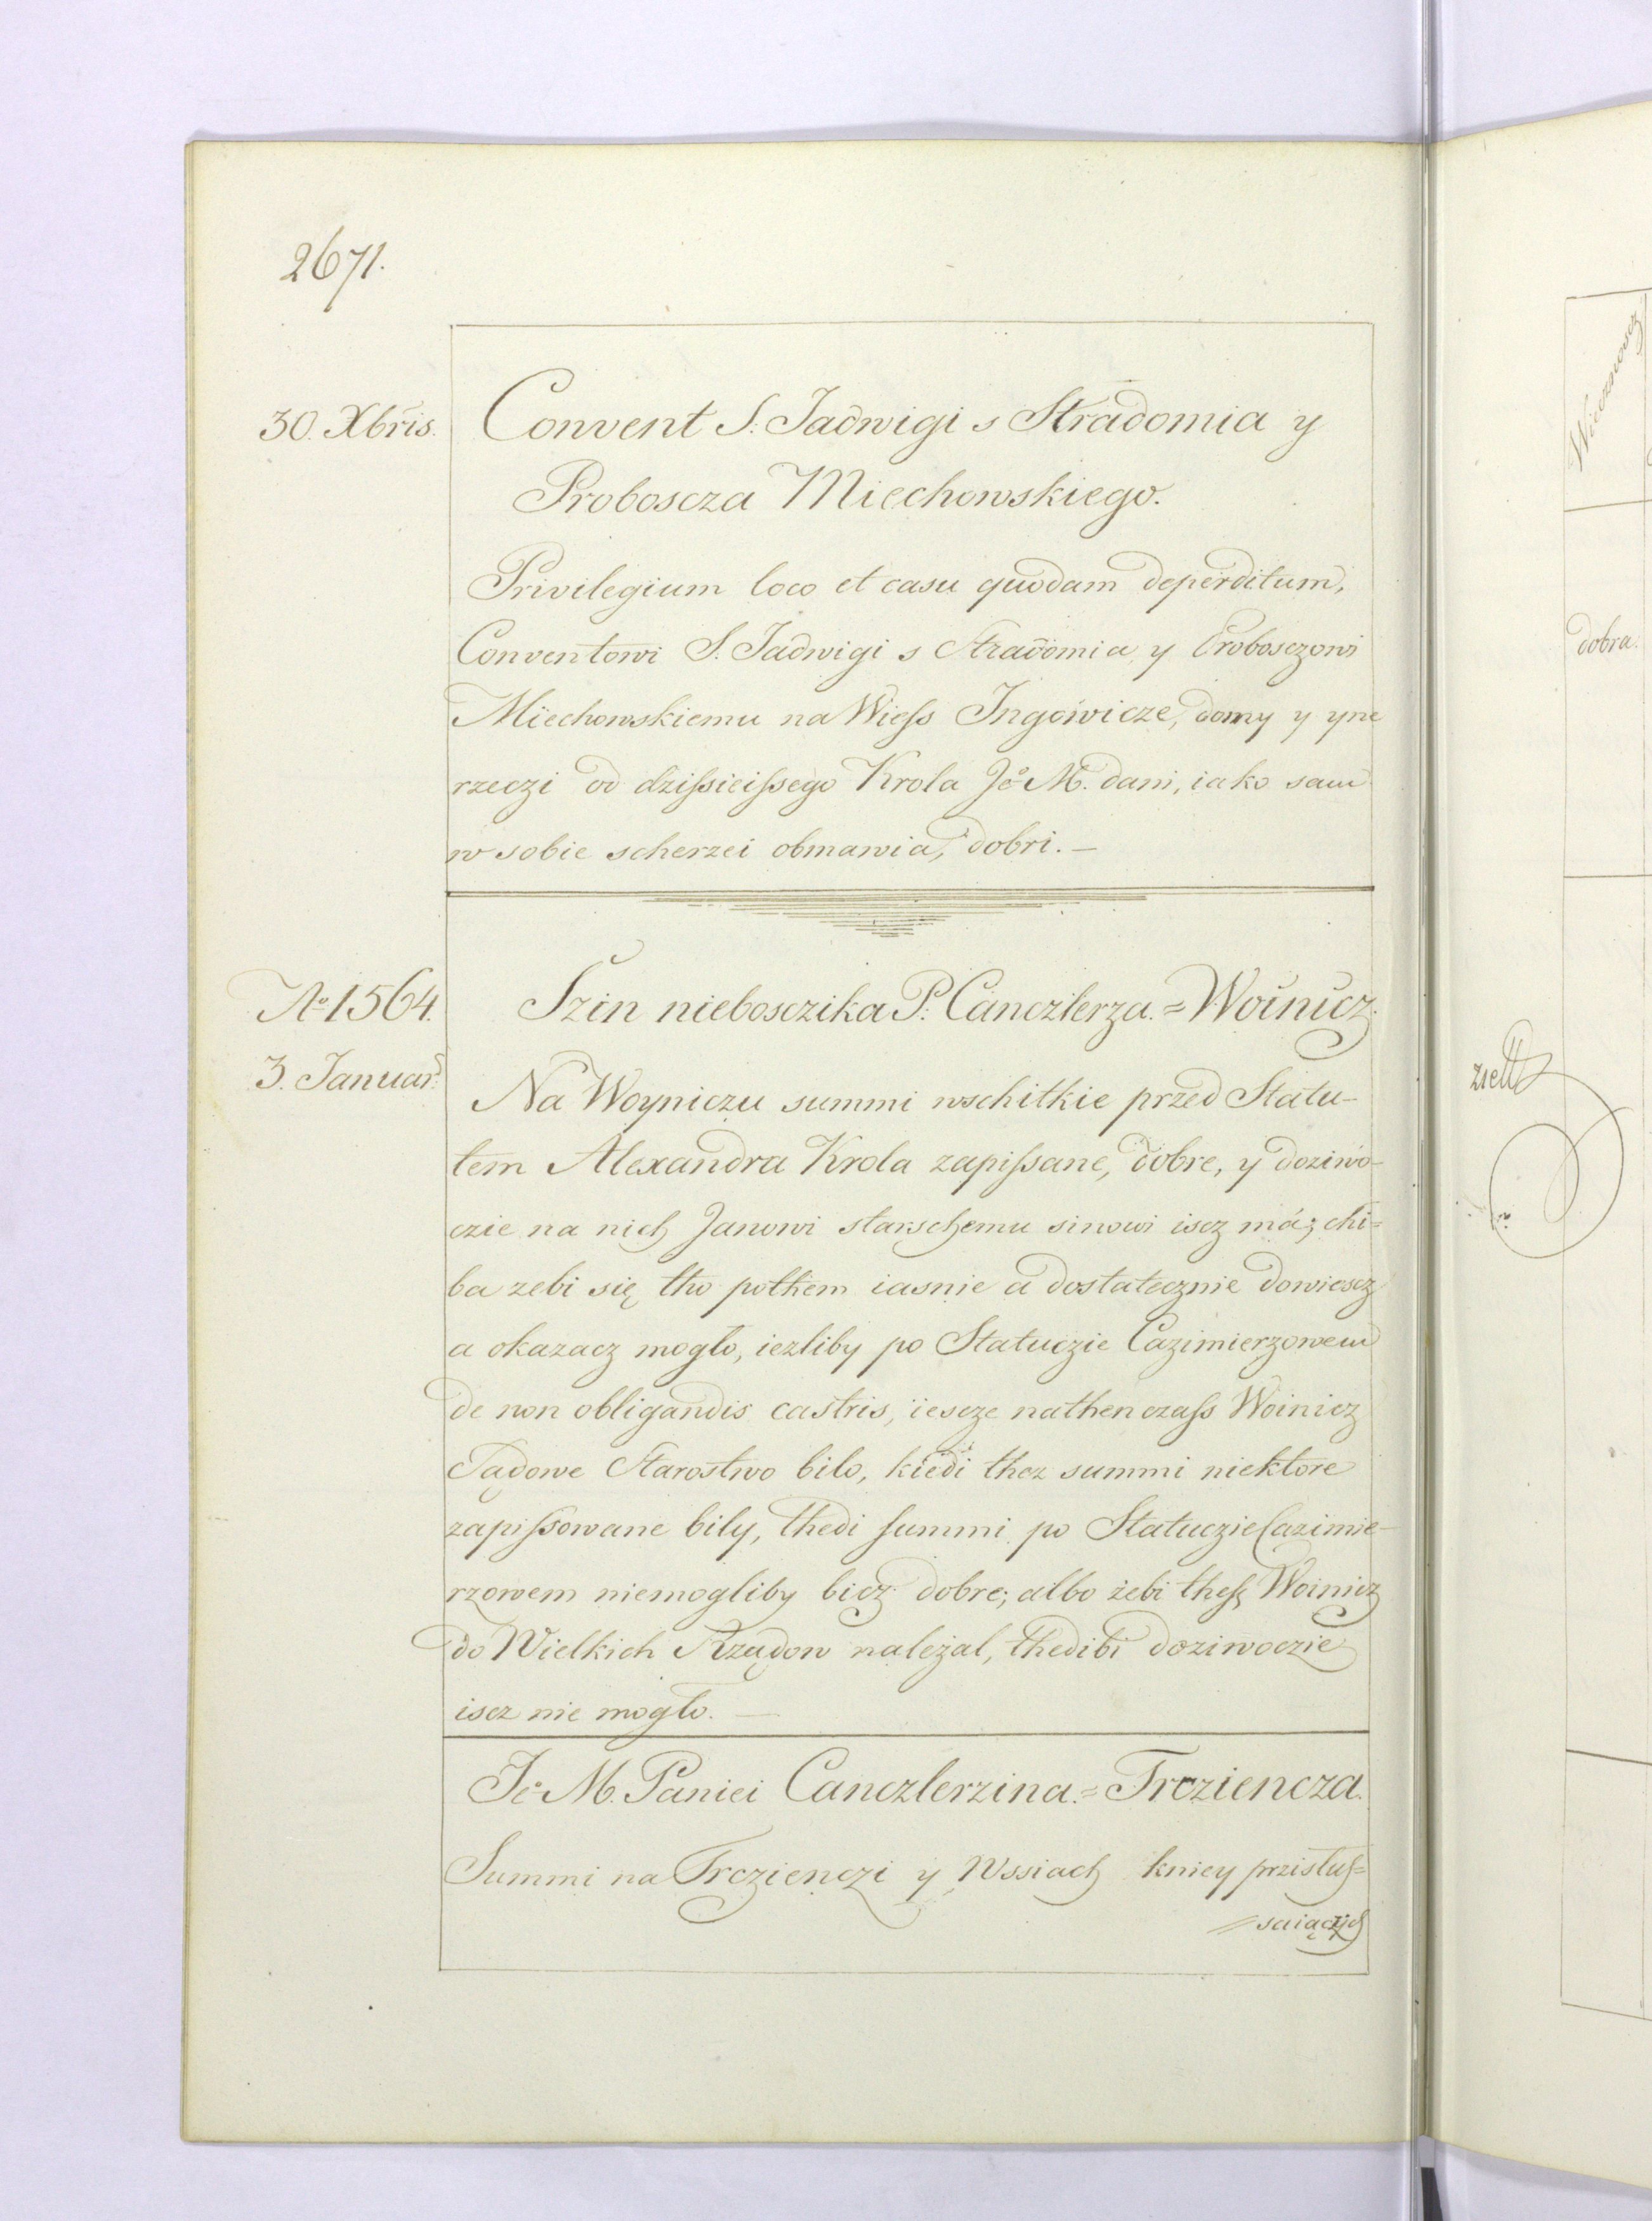 2671.
30. Xbris.
Convent S. Jadwigi s Stradomia y
Proboscza Miechowskiego.
Privilegium loco et casu quodam deperditum,
Conventowi S. Jadwigi s Stradomia y Proboszowi
Miechowskiemu na Wieſs Ingowicze, domy y yne
rzeczi od dziſsieiſsego Krola Jeº M. dani, iako sam
w sobie scherzei obmawia, dobri. –
Aº 1564.
3. Januar.
Szin nieboszczika P. Canczlerza. = Woinicz.
Na Woyniczu summi wschitkie przed Statu-
tem Alexandra Krola zapiſsane, dobre, y doziwo-
czie na nich Janowi starschemu sinowi iscz má; chi=
ba zebi się tho pothem iasnie a dostatecznie dowiescz
a okazacz mogło, iezliby po Statuczie Cazimierzowem
de non obligandis castris, iescze nathenczaſs Woinicz
Sądowe Starostwo bilo, kiedi thez summi niektore
zapiſsowane bily, thedi summi po Statuczie Cazimie-
rzowem niemogliby bicz dobre; albo żebi theſz Woinicz
do Wielkich Rządow należal, thedibi doziwoczie
iscz nie mogło. —
Jeº M. Paniei Canczlerzina. = Trcziencza.
Summi na Trczienczi y Wssiach kniey przistuſ=
= saiączych
Wieznowscz
dobra.